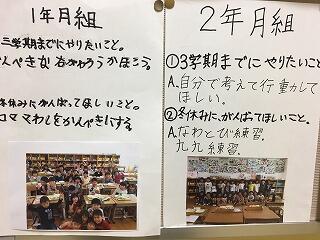 1年月組
三学期までにやりたいこと。
冬休みにがんばってほしいこと。
コママわしをかんぺきにする。
2年月組
①3学期までにやりたいこと
A.自分で考えて行動して
ほしい。
②冬休みに、がんばってほしいこと。
A.なわとび練習.
九九練習.